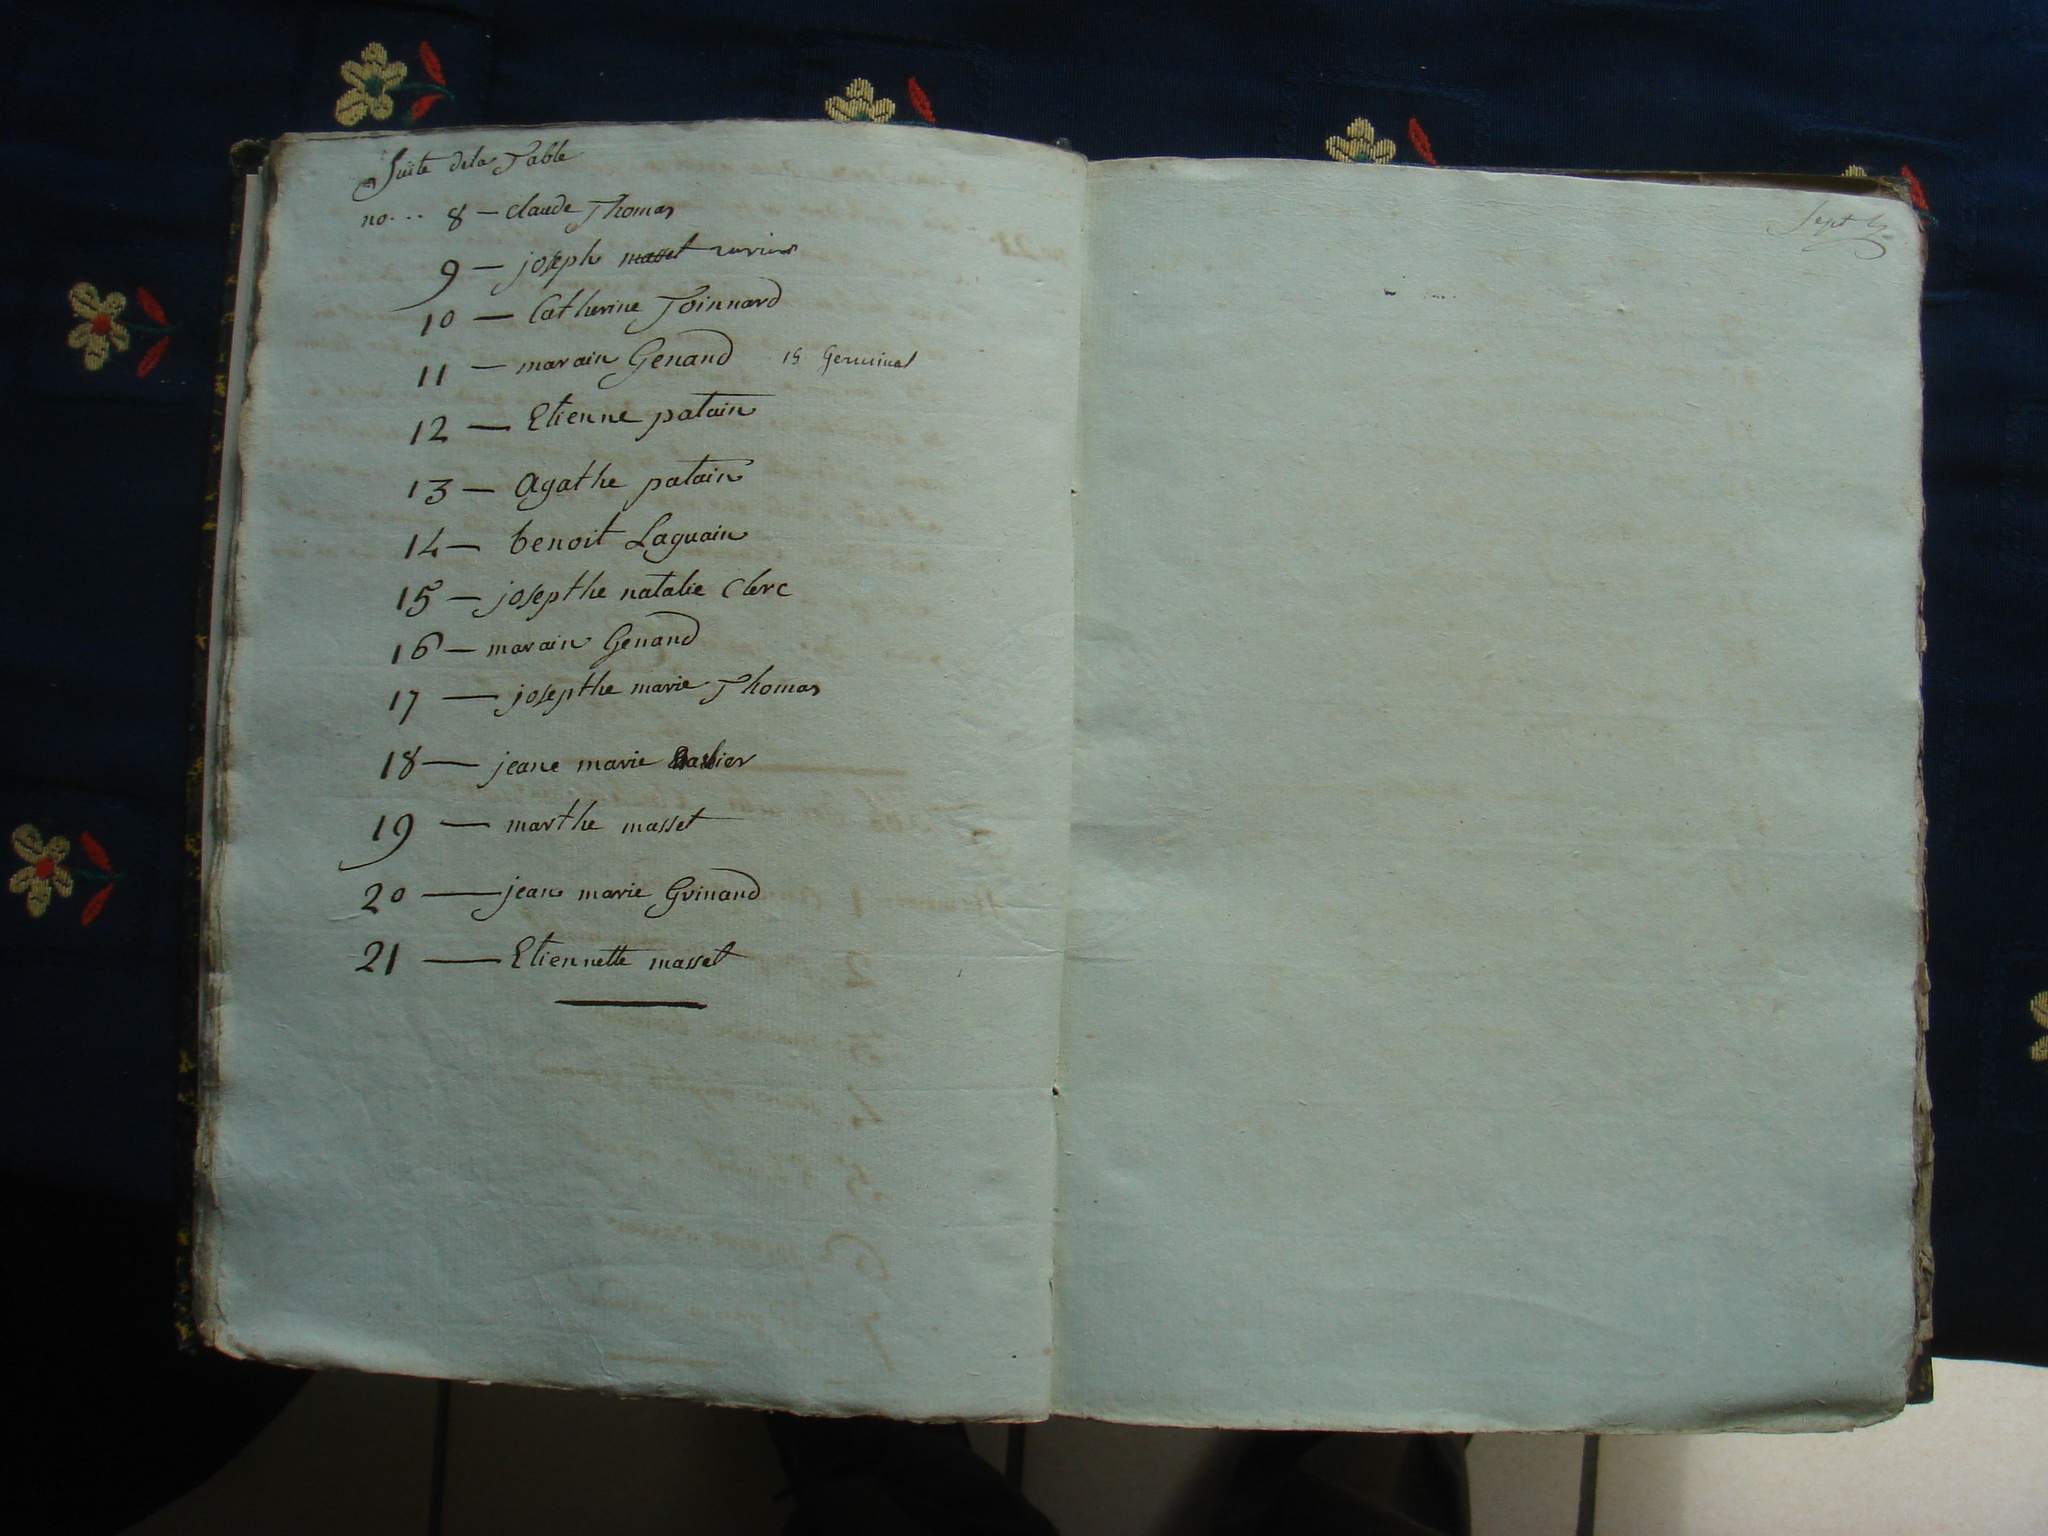 Suite dela Table
no... 8 — Claude Thomas
9 — joseph masset
10 — Catherine Toinnard
11 — marain Genand 15 Germinal
12 — Etienne patain
13 — Agathe patain
14 — benoit Laguain
15 — josepthe natalie Clerc
16 — marain Genand
17 — josepthe marie Thomas
18 — jeane marie
19 — marthe masset
20 — jean marie Grinand
21 — Etiennette masset
Sept